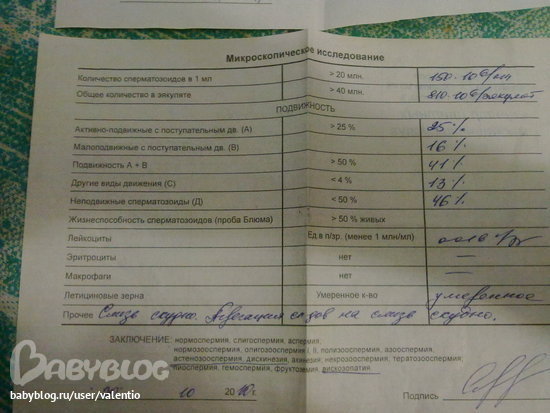 Микроскопическое исследование
Количество сперматозоидов в 1 мл > 20 млн. 150·10⁶/мл
Общее количество в эякуляте > 40 млн. 210·10⁶/эякулят
ПОДВИЖНОСТЬ
Активно-подвижные с поступательным дв. (А) > 25 % 25 %
Малоподвижные с поступательным дв. (В) 16 %
Подвижность А + В > 50 % 41 %
Другие виды движения (С) < 4 % 13 %
Неподвижные сперматозоиды (Д) < 50 % 46 %
Жизнеспособность сперматозоидов (проба Блюма) > 50 % живых
Лейкоциты Ед в п/зр. (менее 1 млн/мл)
Эритроциты нет —
Макрофаги нет —
Летициновые зерна Умеренное к-во умеренное
Прочее Слизь скудно. Агрегация на слизь скудно.
ЗАКЛЮЧЕНИЕ: нормоспермия, олигоспермия, аспермия,
нормозооспермия, олигозооспермия I, II, полизооспермия, азооспермия,
астенозооспермия, дискинезия, акинезия, некрозооспермия, тератозооспермия;
пиоспермия, гемоспермия, фруктоземия, дископозатия.
10 20 г. Подпись
BABYBLOG
babyblog.ru/user/valentio